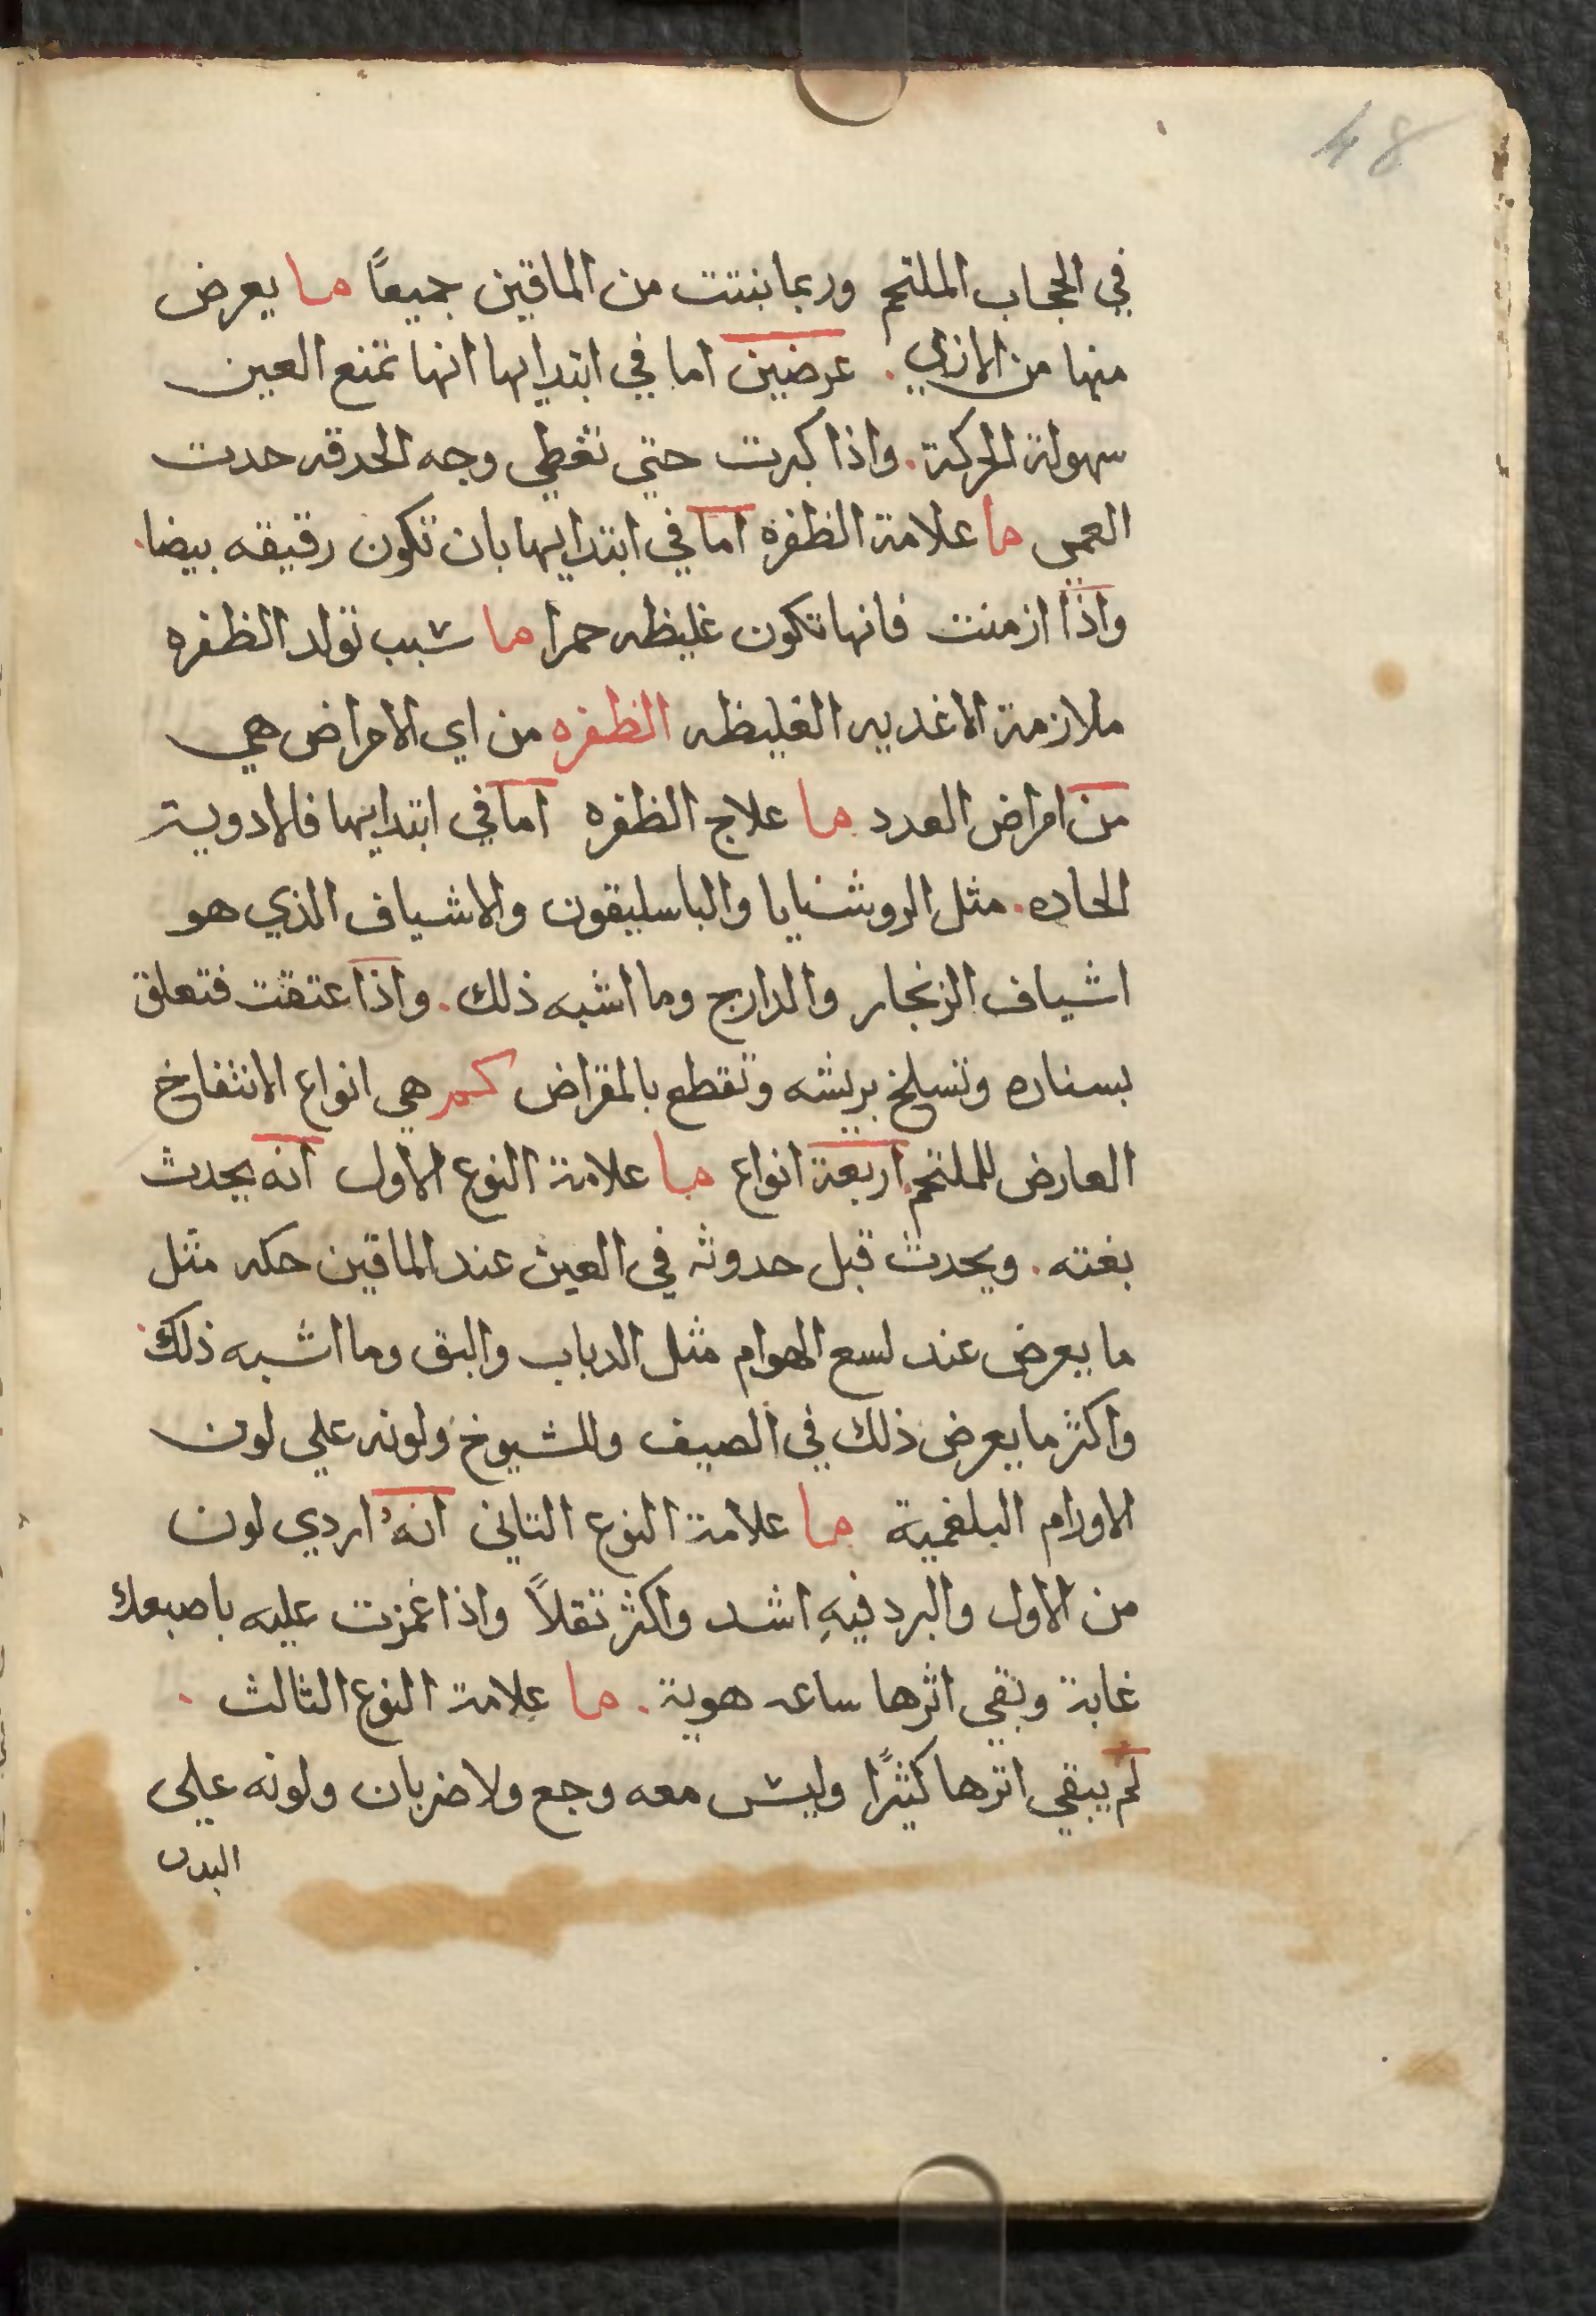 48
في الحجاب الملتحم وربما نبتت من الماقين جميعًا ما يعرض
منها من الاذي. عرضين اما في ابتدايها انها تمنع العين
سهولة الحركة. واذا كبرت حتي تغطي وجه الحدقه حدت
العمي ما علامة الظفره اما في ابتدايها بان تكون رقيقه بيضا.
واذا ازمنت فانها تكون غليظه حمرا ما سبب تولد الظفره
ملازمة الاغديه الغليظه الظفره من اي الامراض هي
من امراض العدد ما علاج الظفره اما في ابتدايها فالادوية
الحاده. مثل الروشنايا والباسليقون والاشياف الذي هو
اشياف الزنجار والدارج وما اشبه ذلك. واذا عتقت فتعلق
بسناره وتسلخ بريشه وتقطع بالمقراض كم هي انواع الانتفاخ
العارض للملتحم. اربعة انواع ما علامة النوع الاول انه يحدث
بغته. ويحدث قبل حدوثه في العين عند الماقين حكه مثل
ما يعرض عند لسع الهوام مثل الدباب والبق وما اشبه ذلك.
واكثر ما يعرض ذلك في الصيف وللشيوخ ولونه علي لون
الاورام البلغمية ما علامة النوع التاني انهُ اردي لون
من الاول والبرد فيهِ اشد واكثر تقلاً واذا غمزت عليه باصبعك
غابة وبقي اثرها ساعه هوية. ما علامة النوع الثالث.
لم يبقي اترها كثيرًا وليس معه وجع ولا ضربان ولونه علي
البدن